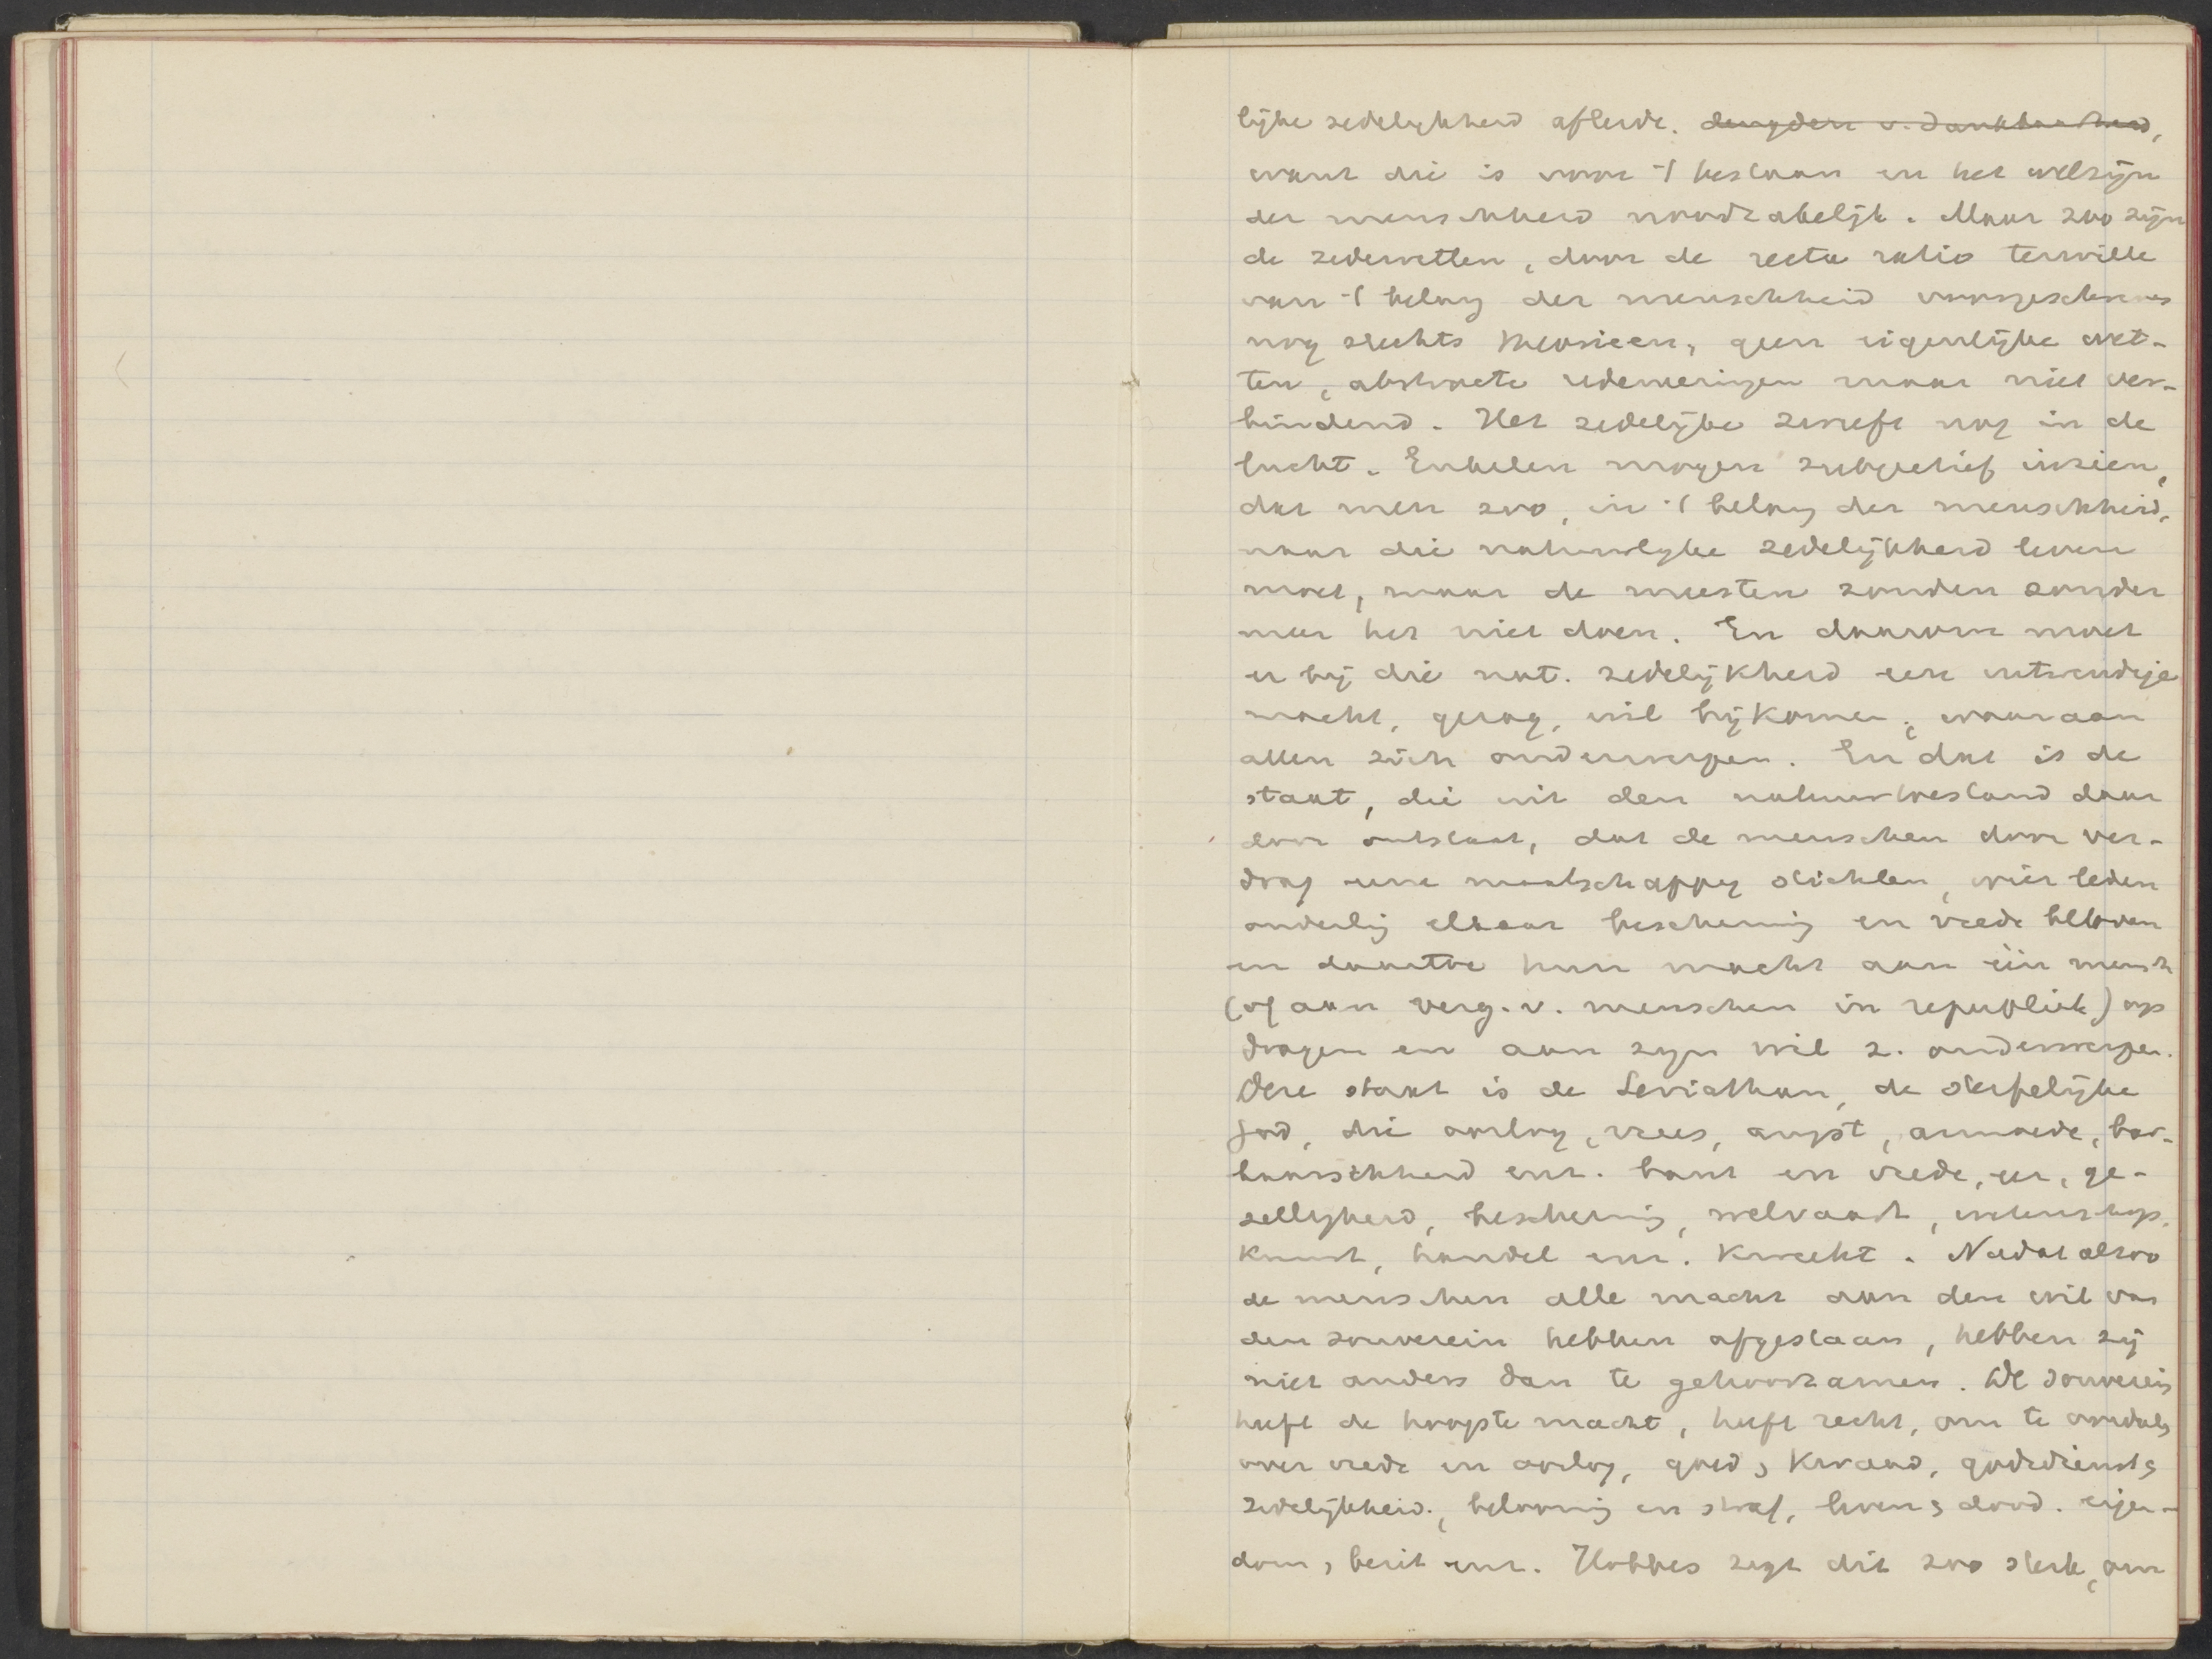 lijke zedelijkheid afleidt. deugden v. dankbaarheid,
want die is voor 't bestaan en het welzijn
der menschheid noodzakelijk. Maar zoo zijn
de zedewetten, door de recta ratio terwille
van 't belang der menschheid voorgeschreven
nog slechts theorieen, geen eigenlijke wet-
ten, abstracte redeneeringen maar niet ver-
bindend. Het zedelijke zweeft nog in de
lucht. Enkelen mogen subjectief inzien,
dat men zoo, in 't belang der menschheid,
naar die natuurlijke zedelijkheid leven
moet, maar de meesten zouden zonder
meer het niet doen. En daarom moet
er bij die nat. zedelijkheid een uitwendige
macht, gezag, wil bijkomen, waaraan
allen zich onderwerpen. En dat is de
staat, die uit den natuurtoestand daar
door ontstaat, dat de menschen door ver-
drag eene maatschappij stichten, wier leden
onderling elkaar bescherming en vrede beloven
en daartoe hun macht aan één mensch
(of aan verg. v. menschen in republiek) op
dragen en aan zijn wil z. onderwerpen.
Deze staat is de Leviathan, de sterfelijke
God, die oorlog, vrees, angst, armoede, bar-
baarschheid enz. bant en vrede, eer, ge-
zelligheid, bescherming, welvaart, wetenschap,
kunst, handel enz. kweekt. Nadat alzoo
de menschen alle macht aan den wil van
den souverein hebben afgestaan, hebben zij
niet anders dan te gehoorzamen. De souverein
heeft de hoogste macht, heeft recht, om te oordeelen
over vrede en oorlog, goed & kwaad, godsdienst &
zedelijkheid, belooning en straf, leven & dood. eigen-
dom, bezit enz. Hobbes zegt dit zoo sterk, om